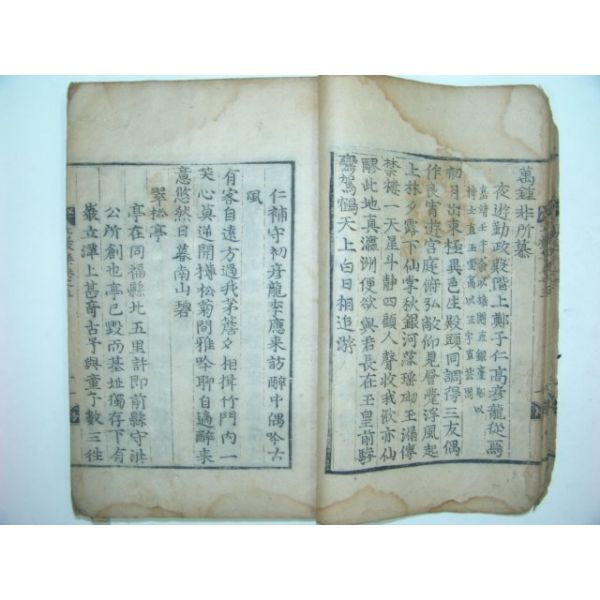 萬鍾非所慕
夜遊勤政殿階上鄭子仁高彦龍從焉
初月出東極異色生殿頭同調得三友偶
作良宵遊宮庭俯弘敞仰見層甍浮風起
上林夕露下仙掌秋銀河落瑤砌玉漏傳
禁樓一天星斗靜四顧人聲收我歌亦仙
醪此地眞瀛洲便欲與君長在玉皇前驂
鸞鴣鶴天上白日相追游
仁補守初彦龍李應來訪醉中偶吟古
風
有客自遠方過我茅簷夕相揖竹門內一
笑心莫逆開樽松菊間雅吟聊自適醉來
意悠然日暮南山碧
翠松亭
亭在同福縣北五里許即前縣守洪
公所創也亭已毀而基址獨存下有
巖立潭上甚奇古予與童丁數三徃